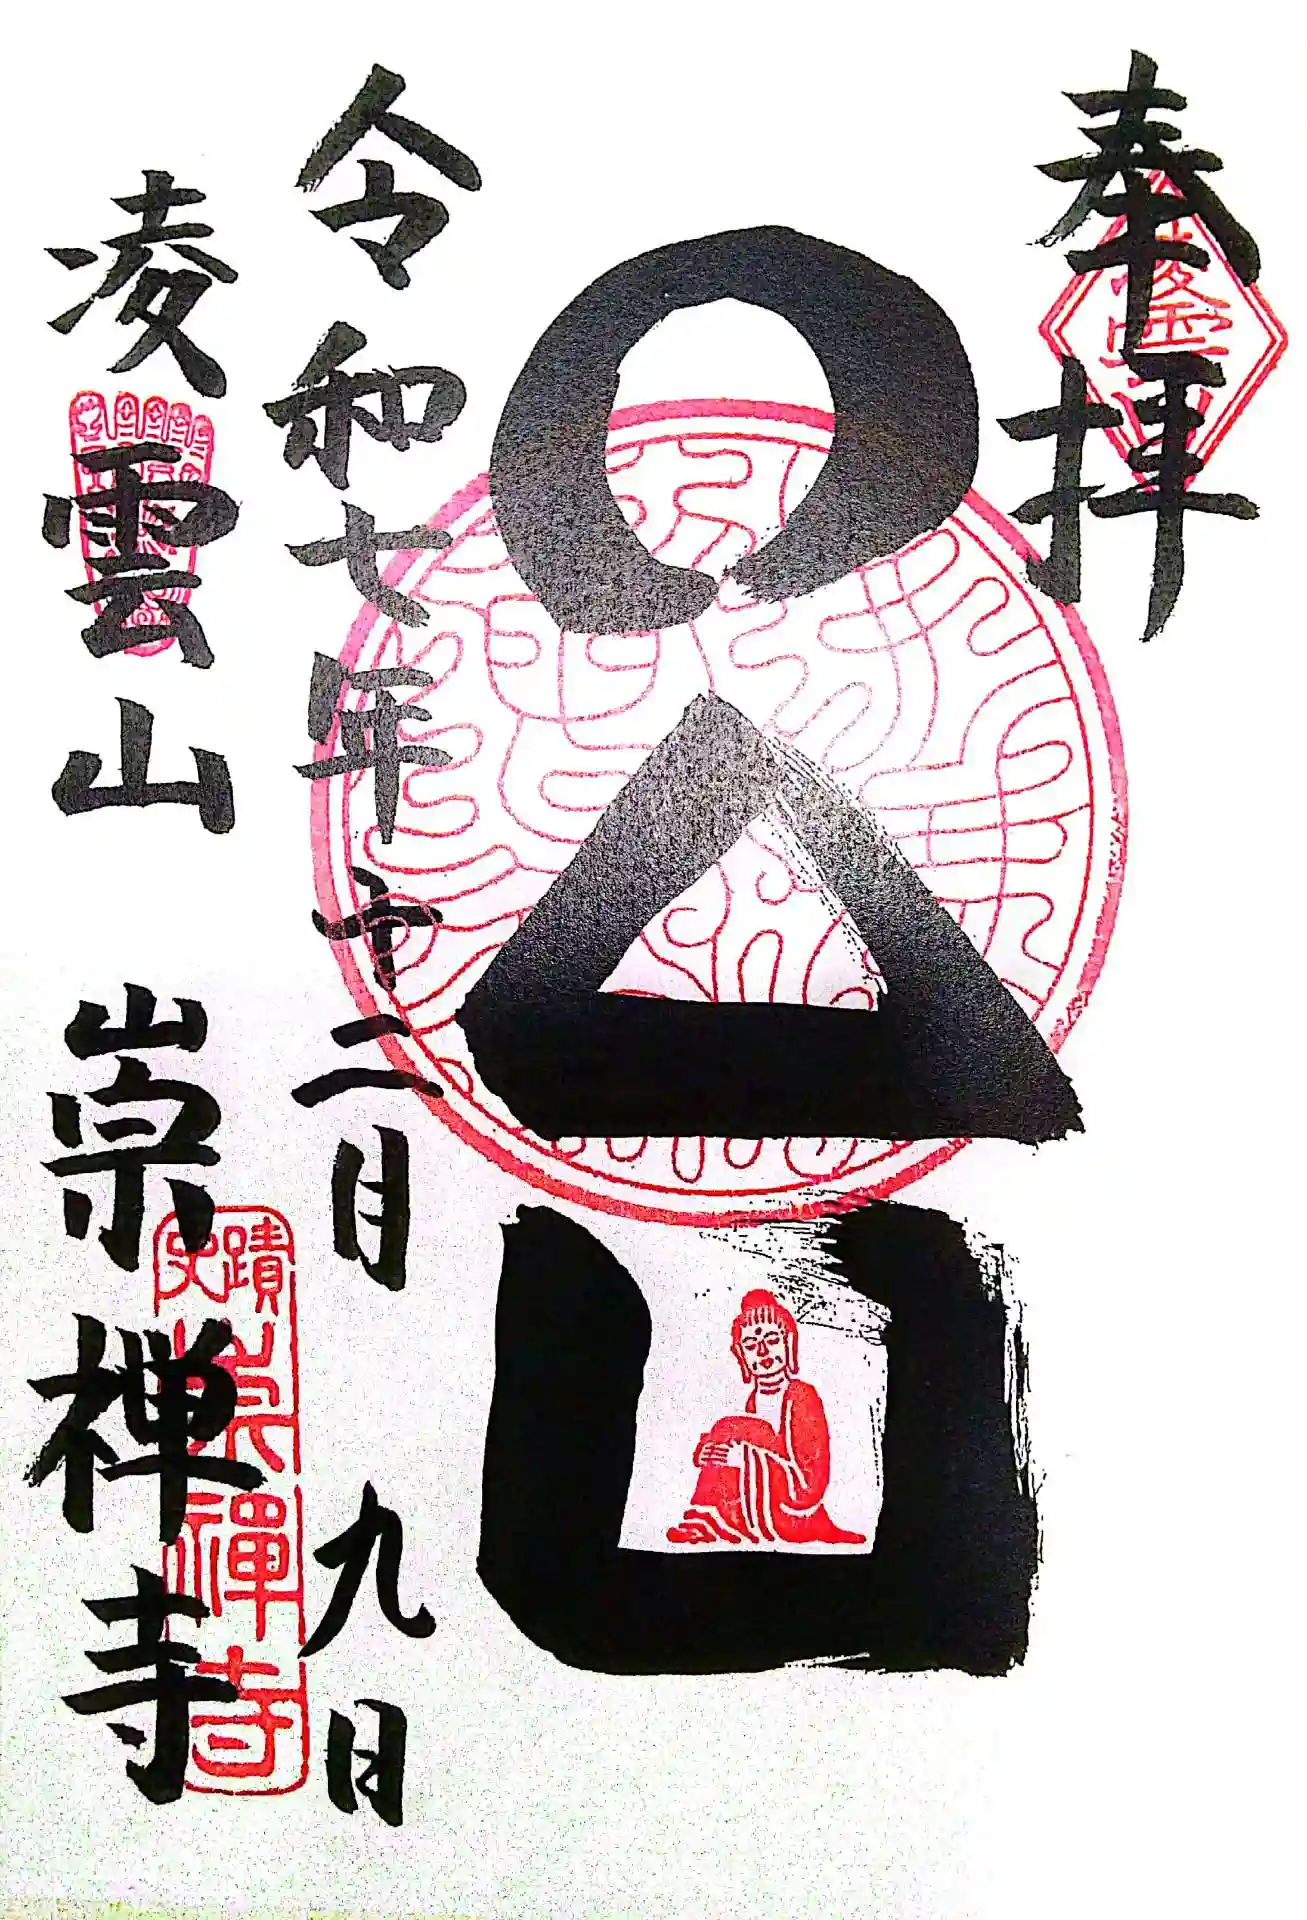 奉拝
○△□
令和七年十二月九日
凌雲山 崇禅寺
史蹟
崇禪寺